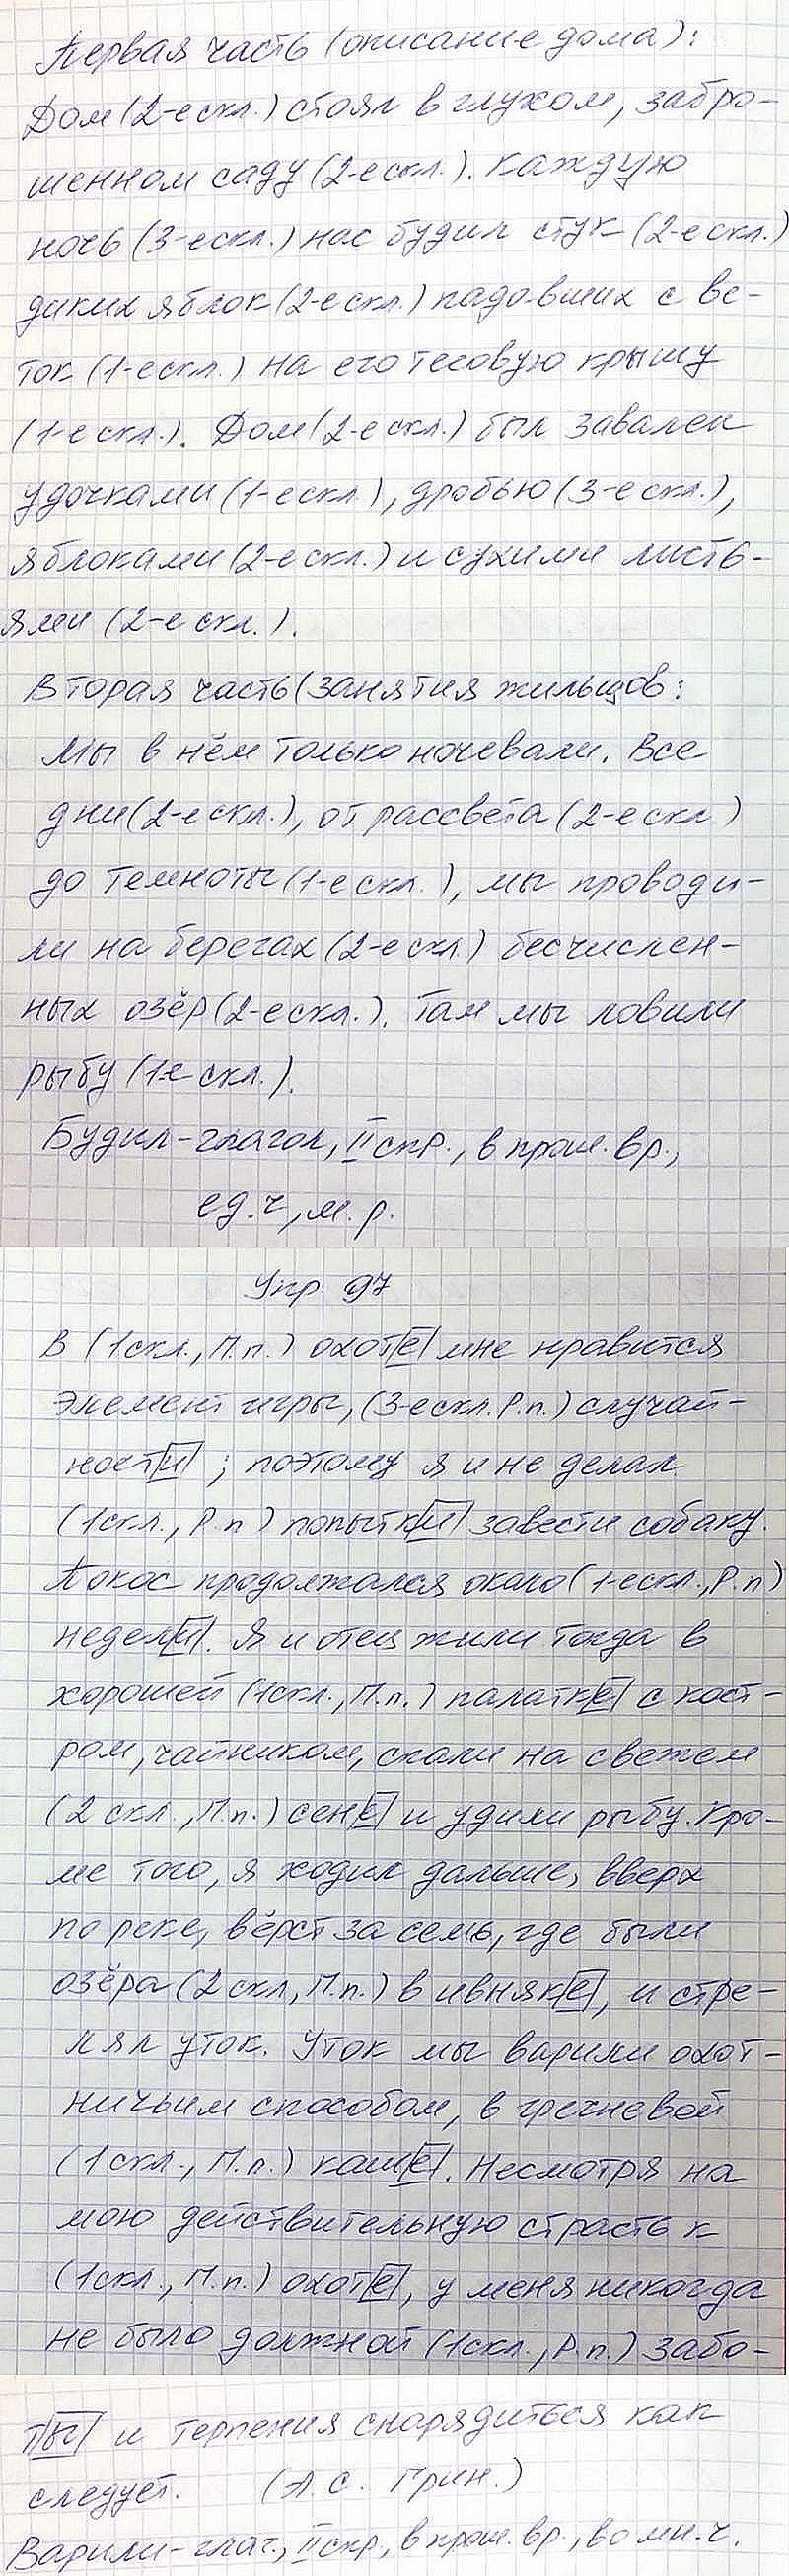 Первая часть (описание дома):
Дом (2-е скл.) стоял в глухом, забро-
шенном саду (2-е скл.). Каждую
ночь (3-е скл.) нас будил стук (2-е скл.)
диких яблок (2-е скл.) падавших с ве-
ток (1-е скл.) на его тесовую крышу
(1-е скл.). Дом (2-е скл.) был завален
удочками (1-е скл.), дробью (3-е скл.),
яблоками (2-е скл.) и сухими листь-
ями (2-е скл.).
Вторая часть (занятия жильцов:
Мы в нём только ночевали. Все
дни (2-е скл.), от рассвета (2-е скл.)
до темноты (1-е скл.), мы проводи-
ли на берегах (2-е скл.) бесчислен-
ных озёр (2-е скл.). Там мы ловили
рыбу (1-е скл.).
Будил - глагол, II спр., в прош. вр.,
ед. ч, м. р.
Упр 97
В (1 скл., П.п.) охоте мне нравится
элемент игры, (3-е скл. Р.п.) случай-
ности; поэтому я и не делал
(1 скл., Р.п) попытки завести собаку.
Покос продолжался около (1-е скл., Р.п)
недели. Я и отец жили тогда в
хорошей (1 скл., П.п.) палатке с кост-
ром, чайником, спали на свежем
(2 скл., П.п.) сене и удили рыбу. Кро-
ме того, я ходил дальше, вверх
по реке, вёрст за семь, где были
озёра (2 скл, П.п.) в ивняке, и стре-
лял уток. Уток мы варили охот-
ничьим способом, в гречневой
(1 скл., П.п.) каше. Несмотря на
мою действительную страсть к
(1 скл., П.п.) охоте, у меня никогда
не было должной (1 скл., Р.п.) забо-
ты и терпения снарядиться как
следует. (А. С. Грин.)
Варили - глаг., II спр., в прош. вр., во мн. ч.